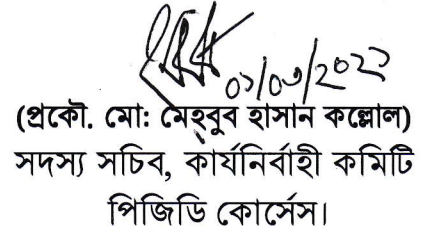 ০১/০৩/২০২২
(প্রকৌ. মো: মেহবুব হাসান কল্লোল)
সদস্য সচিব, কার্যনির্বাহী কমিটি
পিজিডি কোর্সেস।